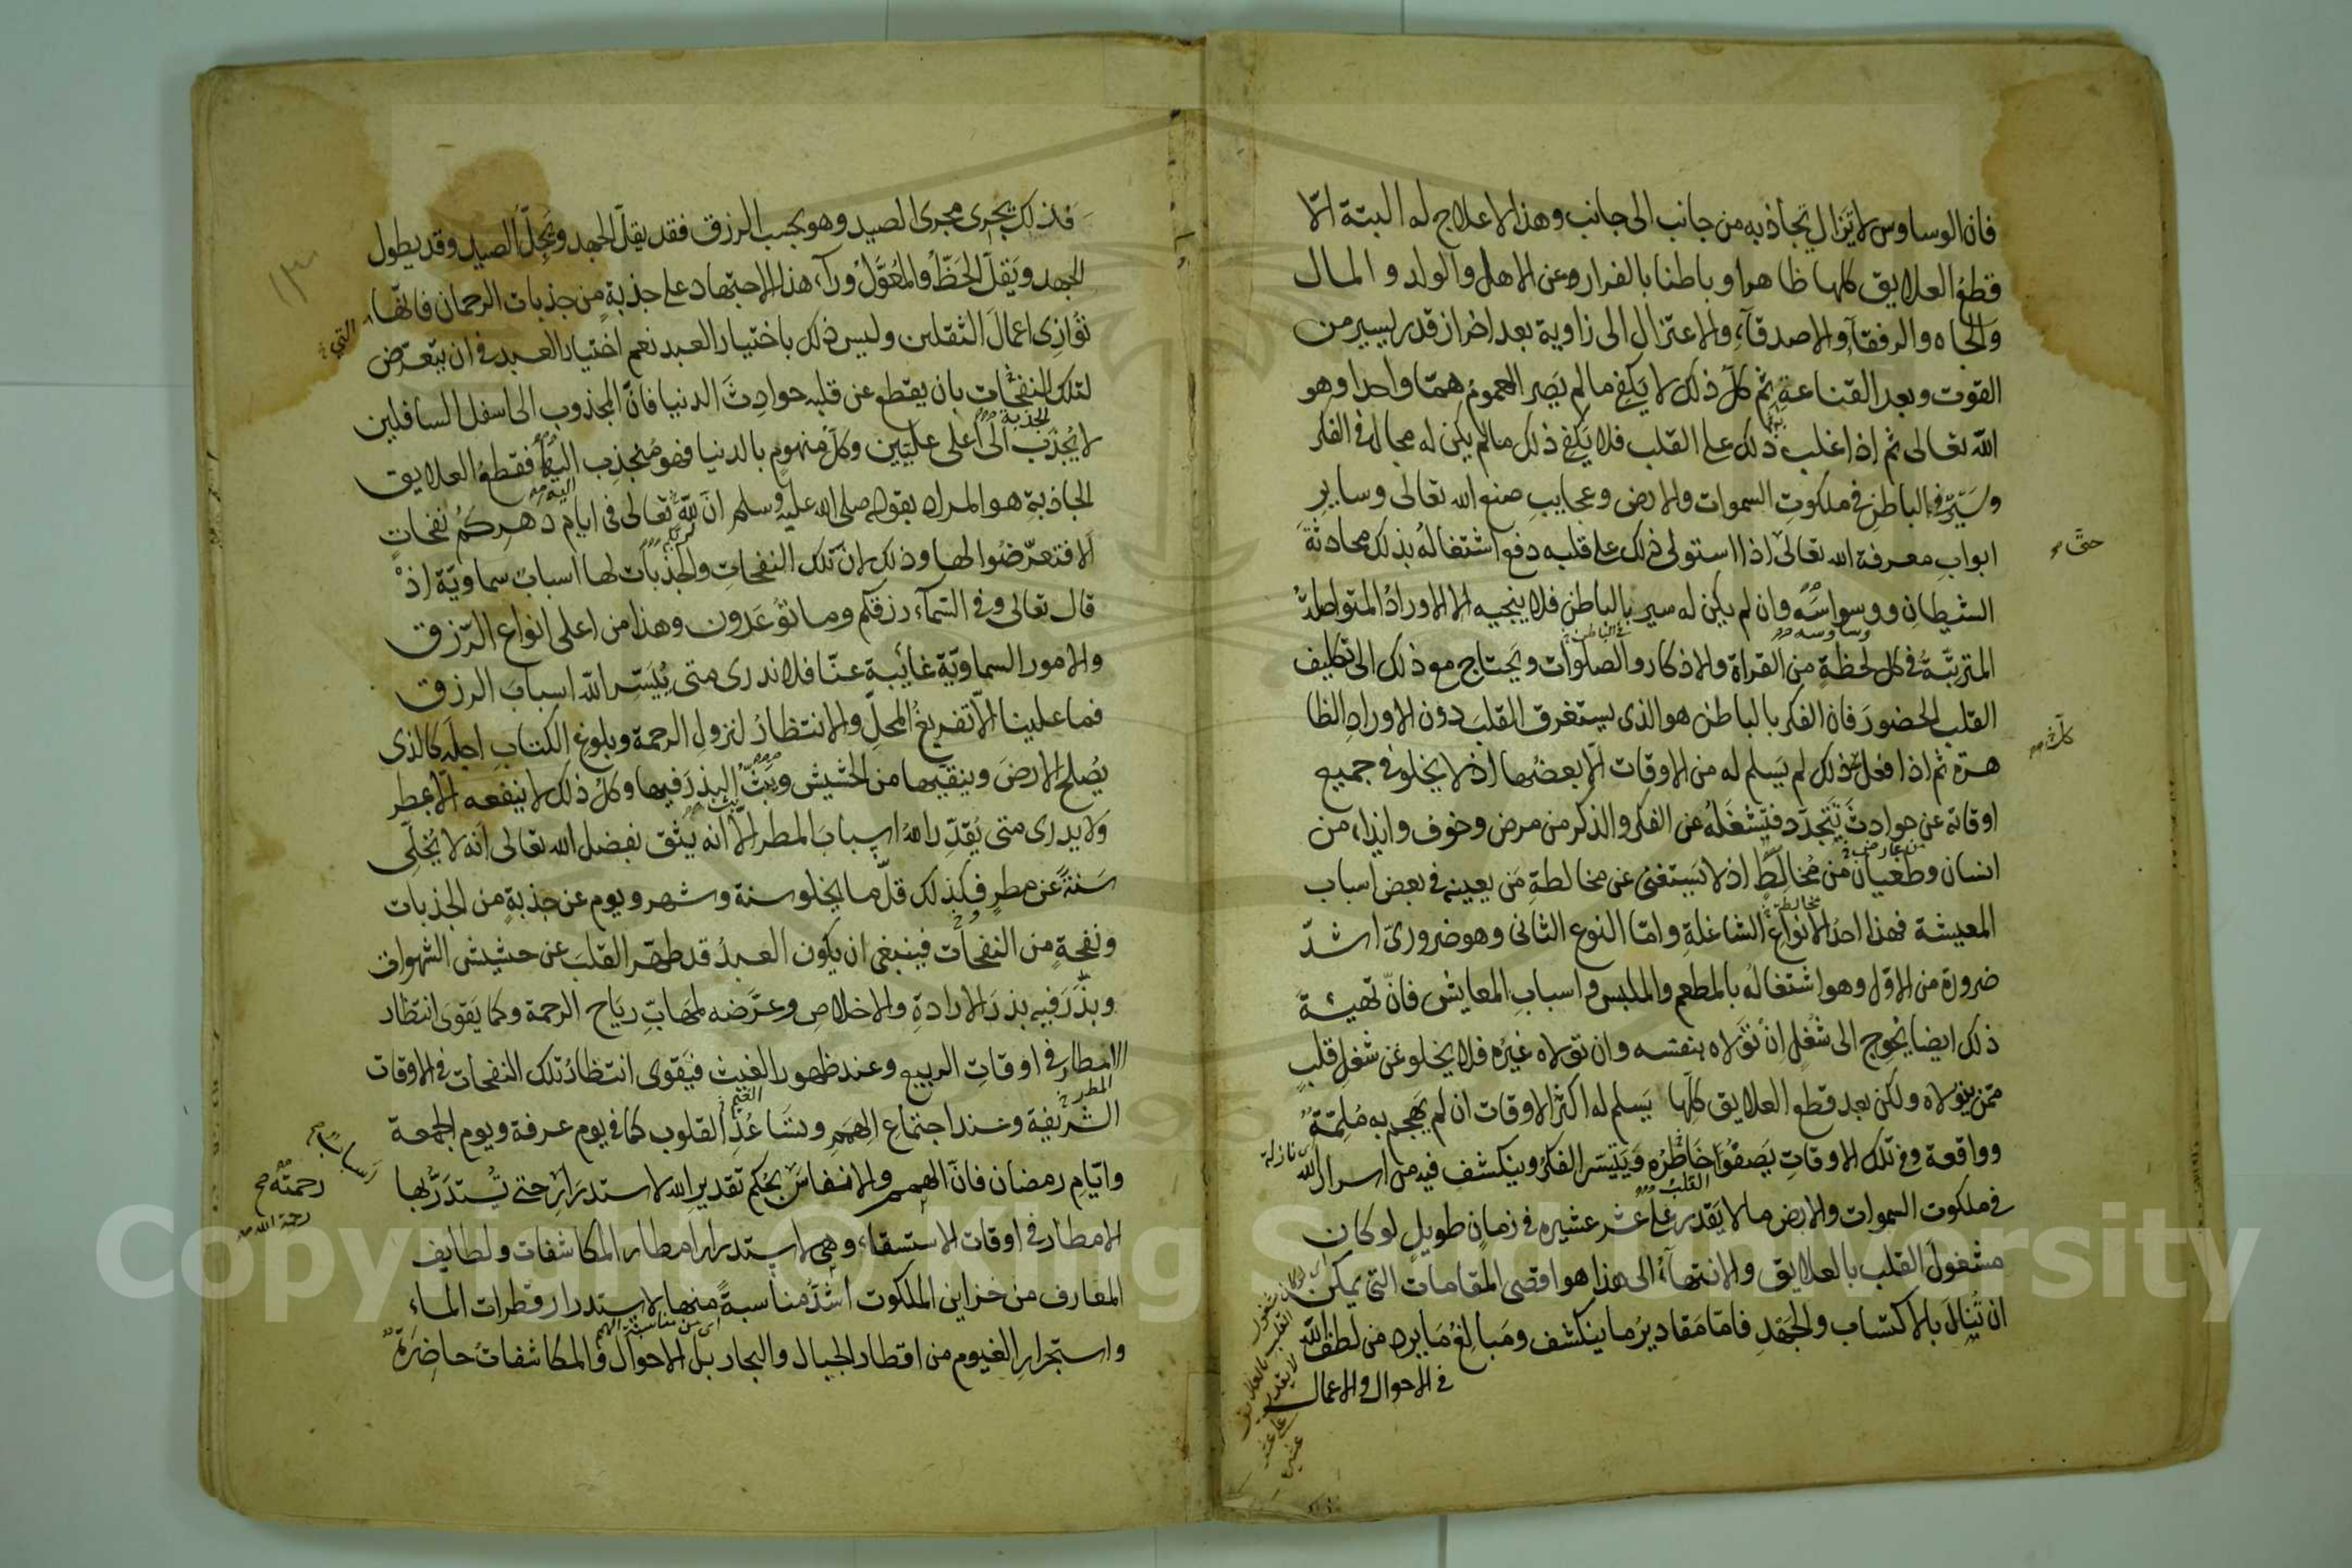 فان الوساوس لا تزال تجاذبه من جانب الى جانب وهذا لا علاج له البتة الّا
قطعُ العلايق كلها ظاهرا وباطنا بالفرار عن الاهل والولد والمال
والجاه والرفقآءِ والاصدقآءِ والاعتزال الى زاوية بعد احراز قدر يسير من
القوت وبعد القناعة ثم كلّ ذلك لا يكفى ما لم يَصِر الهموم همّا واحدا وهو
الله تعالى ثم اذا غلب ذلك على القلب فلا يكفى ذلك ما لم يكن له مجال فى الفكر
وسَيرٌ فى الباطن فى ملكوت السموات والارض وعجايب صنع الله تعالى وساير
ابواب معرفة الله تعالى اذا استولى ذلك على قلبه دفع اشتغالُه بذلك محادثةَ
حتّى
الشيطان ووسواسَه وان لم يكن له سير بالباطن فلا ينجيه الا الاورادُ المتواصلةُ
وساوسه
فى الباطن
المترتبّةُ فى كل لحظةٍ من القراة والاذكار والصلوات ويحتاج مع ذلك الى تكليف
القلب الحضورَ فان الفكر بالباطن هو الذى يستغرق القلبَ دون الاوراد الظا
هرة ثم اذا فعل ذلك لم يَسلم له من الاوقات الّا بعضُها اذ لا يخلو فى جميع
كلّ
اوقاته عن حوادثَ تَتَجدّد فتشغلُه عن الفكر والذكر من مرض وخوف وايذاء من
انسان وطغيان من مُخالطٍ اذ لا يَستغنى عن مخالطةِ مَن يعينه فى بعض اسباب
مخالطة
المعيشة فهذا احدُ الانواع الشاغلةِ وامّا النوع الثانى وهو ضرورىّ اشدّ
ضرورة من الاوّل وهو اشتغالُه بالمطعم والملبس واسبابِ المعايش فانّ تهيئة
ذلك ايضا يُحوِج الى شُغلٍ اِنْ تَوَلاه بنفسه وان تولاه غيرُه فلا يخلو عن شغلِ قلبٍ
ممّن يتولاه ولكن بعد قطع العلايق كلّها يَسلم له اكثرُ الاوقات ان لم يَهجم به مُلِمّةٌ
نازلة
وواقعة وفى تلك الاوقاتِ يَصفوُ خَاطرُه وَيَتيَسّر الفكرُ وينكشف فيه من اسرار الله
القلبُ
فى ملكوت السموات والارض ما لا يَقدر على عُشر عشيره فى زمانٍ طويلٍ لو كان
مشغولَ القلب بالعلايق والانتهآءُ الى هذا هو اقصى المقامات التى يمكن
ان تُنال بالاكتساب والجَهْدِ فامّا مَقاديرُ ما ينكشف ومَبالغُ مَا يرد من لطف الله
فى الاحوال والاعمال
فذلك يَجرى مجرى الصيد وهو بحسب الرزق فقد يقلّ الجهد ويَجِلّ الصيد وقد يطول
الجهد ويَقلّ الحَظّ والمُعَوَّلُ ورآءَ هذا الاجتهاد على جذبةٍ من جذبات الرحمان فانّها
التى
تُوَازى اعمالَ الثقلين وليس ذلك باختيار العبد نعم اختيار العبد فى ان يتعرّض
لتلك النفحات بان يقطع عن قلبه حوادِثَ الدنيا فانّ المجذوب الى اسفل السافلين
الجذبة
لا يُجذَب الى اعلى عليّين وكلّ منهومٍ بالدنيا فهو مُنجذِب اليها فقطعُ العلايق
اليه
الجاذبةِ هو المراد بقوله صلى الله عليه وسلم انّ للهِ تعالى فى ايام دَهركم نفحاتٍ
الا فتعرّضُوا لها وذلك لانّ تلك النفحاتِ والجَذْبَات لها اسبابٌ سماويّة اذْ
قال تعالى وفى السّمآء رزقكم وما تُوعَدون وهذا من اعلى انواع الرّزق
والامور السماويّة غائبة عنّا فلا ندرى متى يُيَسّر الله اسبابَ الرزق
فما علينا الّا تفريغُ المحلّ والانتظارُ لنزول الرحمة وبلوغ الكتابِ اجلَه كالذى
يُصلح الارضَ وينقّيها من الحشيش ويَبُثّ البذرَ فيها وكلُ ذلك لا ينفعه الّا بمطر
ولا يدرى متى يُقدّر اللهُ اسبابَ المطر الّا انه يَثق بفضل الله تعالى اَنّه لا يُخلّى
سَنَةً عن مطرٍ فكذلك قلّ ما يخلو سنة وشهر ويوم عن جذبةٍ من الجذبات
ونفحةٍ من النفحات فينبغى ان يكون العبدُ قد طهّر القلبَ عن حشيش الشهوات
وبذَّرَ فيه بذرَ الارادةِ والاخلاصِ وعرَّضه لمَهابّ رياح الرحمة وكما يَقوَى انتظار
الامطار فى اوقاتِ الربيع وعند ظهور الغيث فيَقوى انتظارُ تلك النفحات فى الاوقات
المطر
الغيم
الشريفة وعند اجتماع الهِمَمِ وتسَاعُدِ القلوب كما فى يوم عرفة ويوم الجمعة
وايّامِ رمضان فانّ الهمم والانفاسَ بحُكم تقديرِ الله لاستدرَارِ حتى تُستدَرُّ بها
رحمتُه صح
رحمة الله
الامطار فى اوقات الاستسقاء وهى لاستدرار امطار المكاشفات ولطايف
المعارف من خزاين الملكوت اشدُّ مناسبةً منها لاستدرار قطرات الماءِ
واستجرارِ الغيوم من اقطار الجبال والبحار بل الاحوال والمكاشفاتُ حاضرةٌ